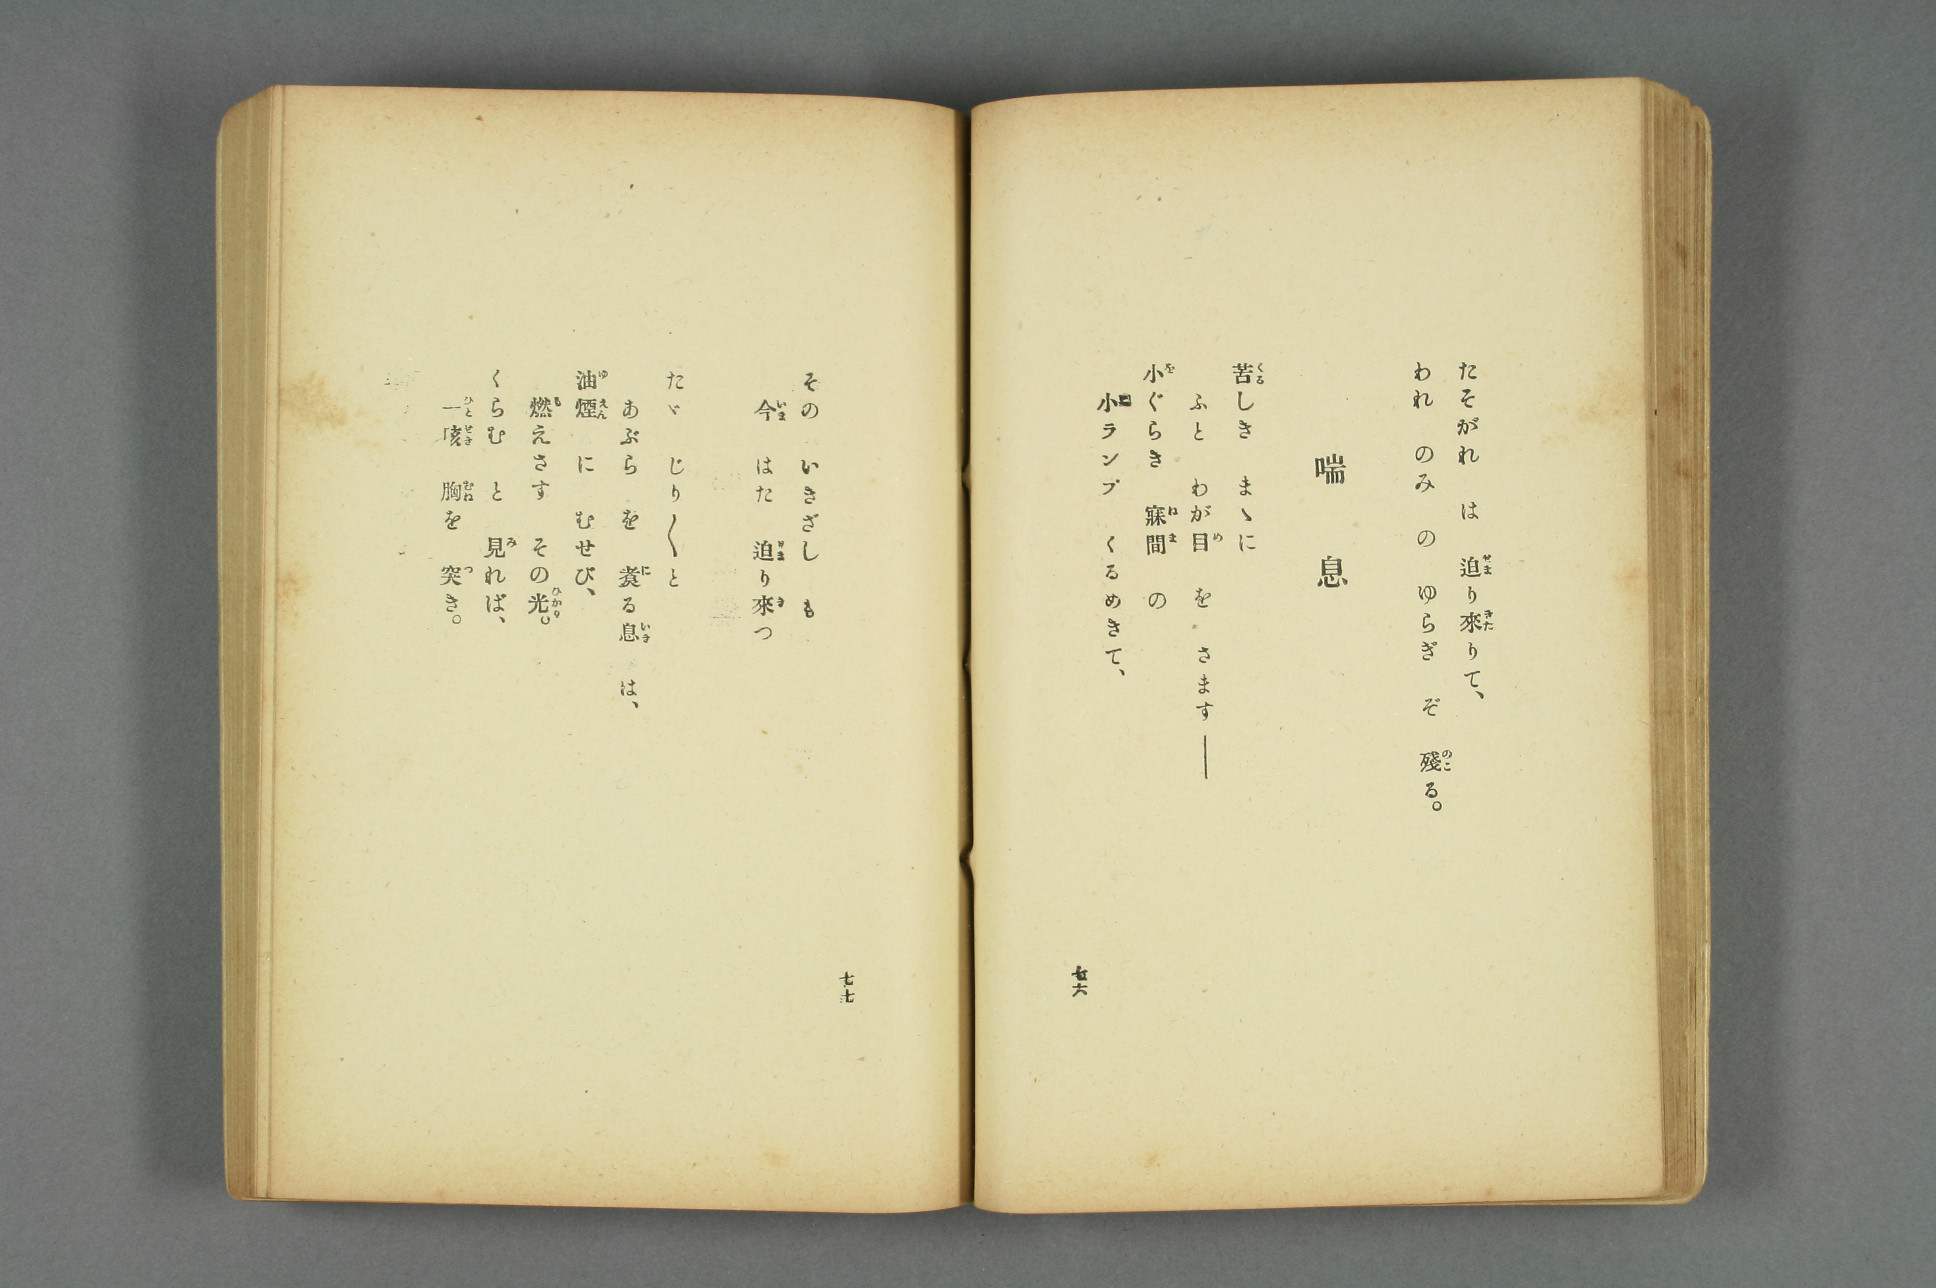 たそがれ は 迫り來りて、
われ のみ の ゆらぎ ぞ 殘る。
喘息
苦しき まゝに
ふと わが目 を さます──
小ぐらき 寐間 の
小ランプ くるめきて、
七六
その いきざし も
今 はた 迫り來つ
たゞ じり〳〵と
あぶら を 煑る息 は、
油煙 に むせび、
燃えさす その光。
くらむ と 見れば、
一咳 胸を 突き。
七七